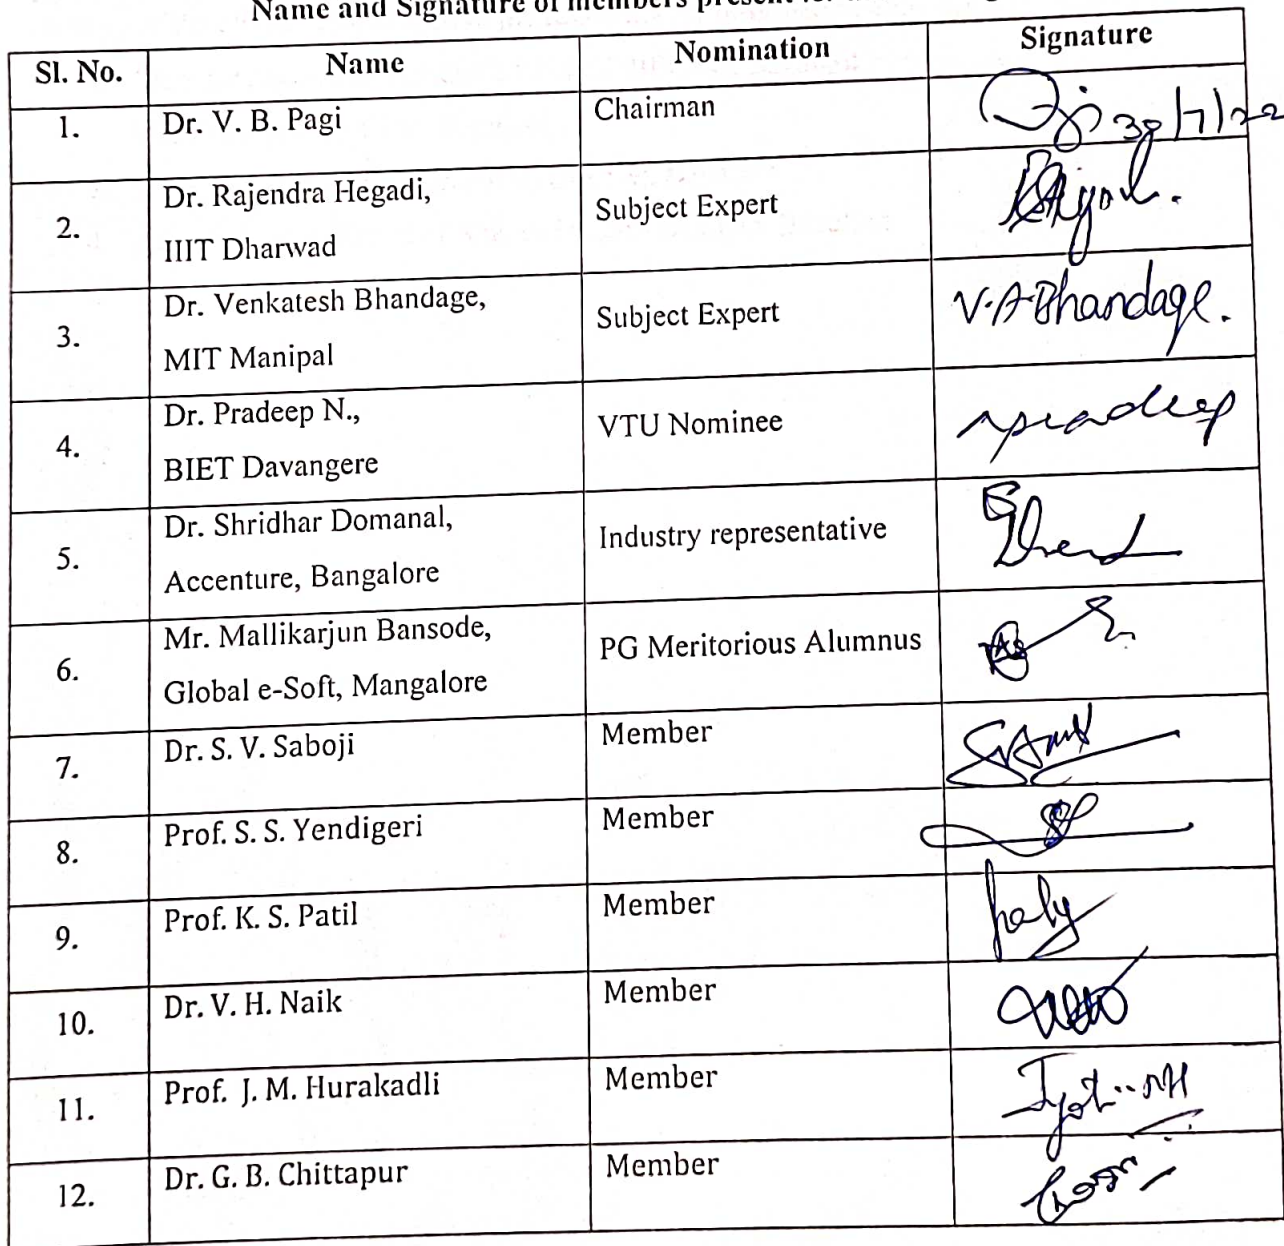 Name and Signature of members present
Sl. No. Name Nomination Signature
1. Dr. V. B. Pagi Chairman 30/7/22
2. Dr. Rajendra Hegadi,
IIIT Dharwad Subject Expert
3. Dr. Venkatesh Bhandage,
MIT Manipal Subject Expert V.A.Bhandage.
4. Dr. Pradeep N.,
BIET Davangere VTU Nominee npradeep
5. Dr. Shridhar Domanal,
Accenture, Bangalore Industry representative
6. Mr. Mallikarjun Bansode,
Global e-Soft, Mangalore PG Meritorious Alumnus
7. Dr. S. V. Saboji Member
8. Prof. S. S. Yendigeri Member
9. Prof. K. S. Patil Member
10. Dr. V. H. Naik Member
11. Prof. J. M. Hurakadli Member
12. Dr. G. B. Chittapur Member